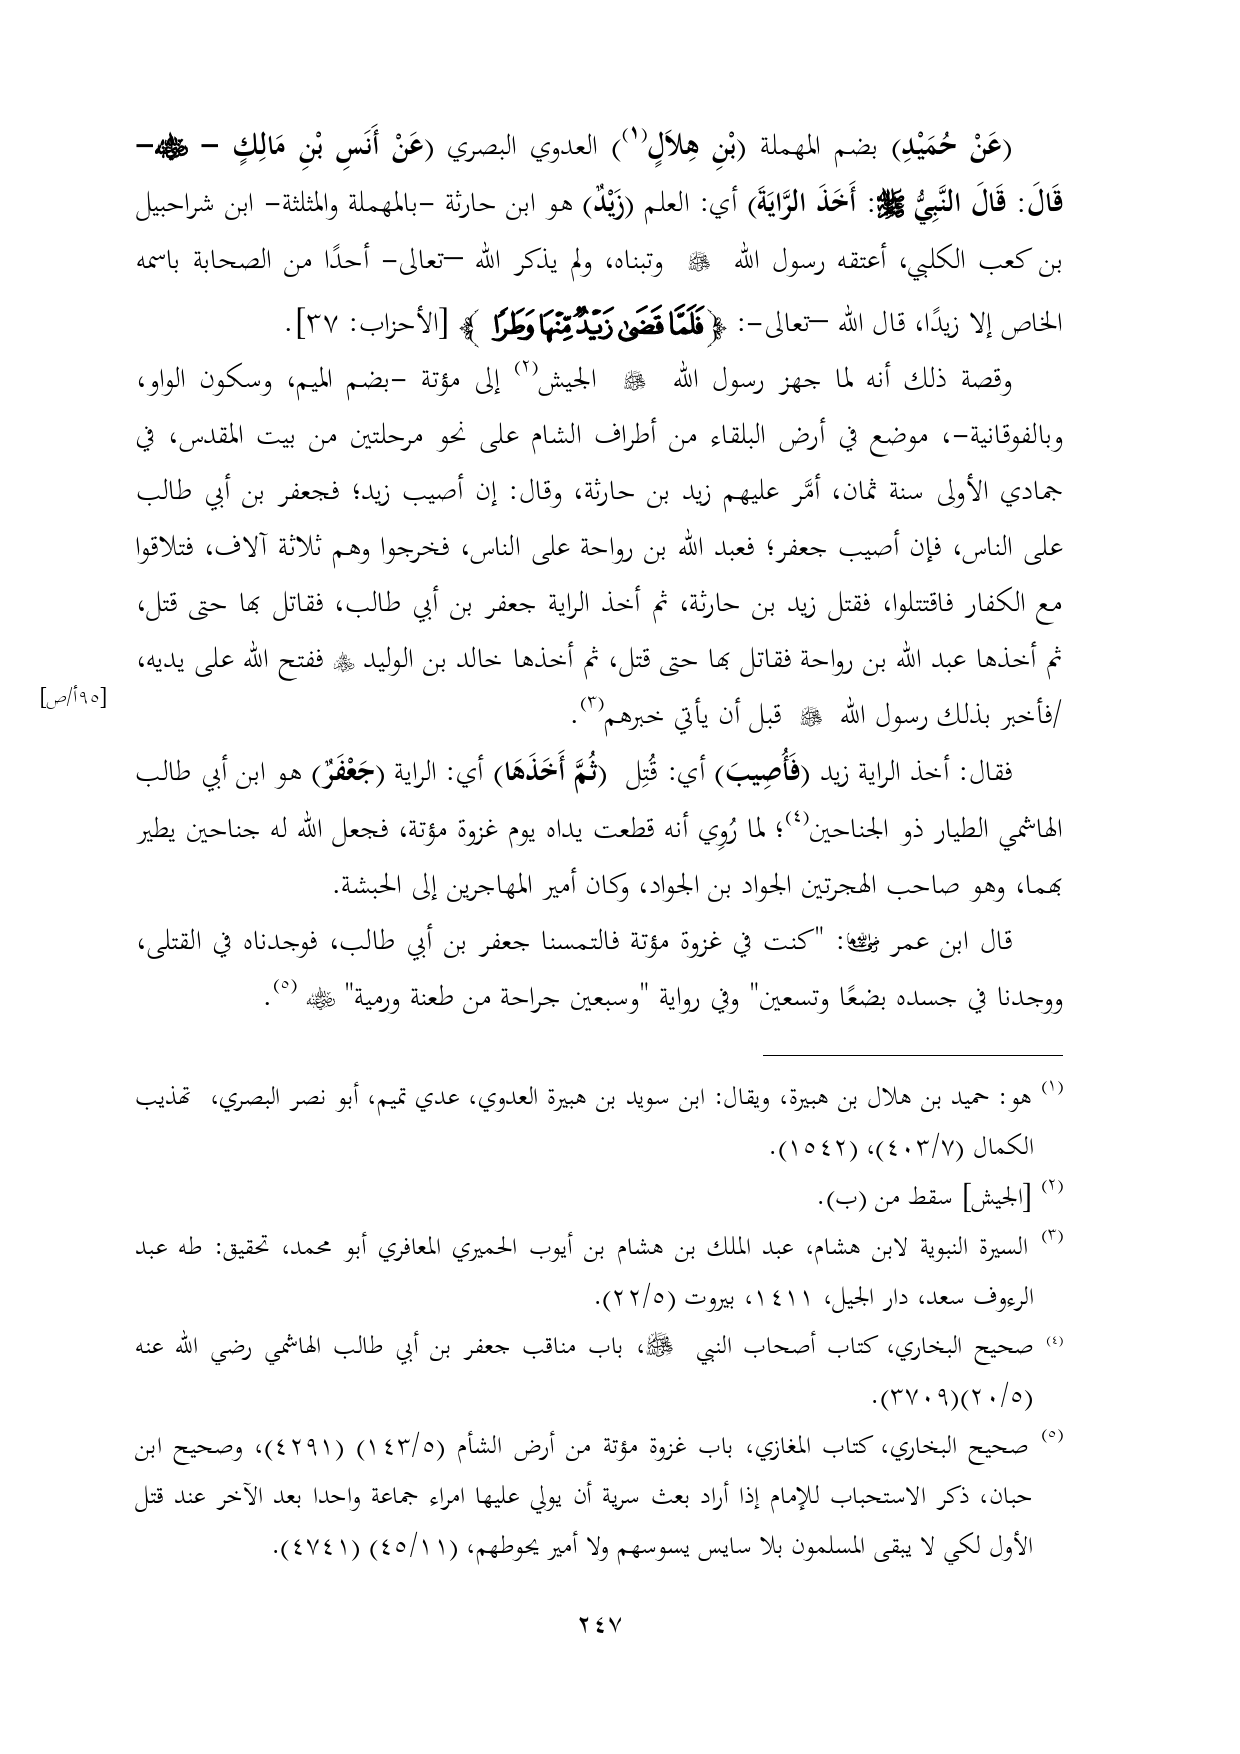 (عَنْ حُمَيْدِ) بضم المهملة (بْنِ هِلاَلٍ(١)) العدوي البصري (عَنْ أَنَسِ بْنِ مَالِكٍ – ﵁–
قَالَ: قَالَ النَّبِيُّ ﷺ: أَخَذَ الرَّايَةَ) أي: العلم (زَيْدٌ) هو ابن حارثة –بالمهملة والمثلثة– ابن شراحبيل
بن كعب الكلبي، أعتقه رسول الله ﷺ وتبناه، ولم يذكر الله –تعالى– أحدًا من الصحابة باسمه
الخاص إلا زيدًا، قال الله –تعالى–: ﴿فَلَمَّا قَضَىٰ زَيْدٌ مِّنْهَا وَطَرًا﴾ [الأحزاب: ٣٧].
وقصة ذلك أنه لما جهز رسول الله ﷺ الجيش(٢) إلى مؤتة –بضم الميم، وسكون الواو،
وبالفوقانية–، موضع في أرض البلقاء من أطراف الشام على نحو مرحلتين من بيت المقدس، في
جمادي الأولى سنة ثمان، أمَّر عليهم زيد بن حارثة، وقال: إن أصيب زيد؛ فجعفر بن أبي طالب
على الناس، فإن أصيب جعفر؛ فعبد الله بن رواحة على الناس، فخرجوا وهم ثلاثة آلاف، فتلاقوا
مع الكفار فاقتتلوا، فقتل زيد بن حارثة، ثم أخذ الراية جعفر بن أبي طالب، فقاتل بها حتى قتل،
ثم أخذها عبد الله بن رواحة فقاتل بها حتى قتل، ثم أخذها خالد بن الوليد ﵁ ففتح الله على يديه،
[٩٥أ/ص]
/فأخبر بذلك رسول الله ﷺ قبل أن يأتي خبرهم(٣).
فقال: أخذ الراية زيد (فَأُصِيبَ) أي: قُتِل (ثُمَّ أَخَذَهَا) أي: الراية (جَعْفَرٌ) هو ابن أبي طالب
الهاشمي الطيار ذو الجناحين(٤)؛ لما رُوِي أنه قطعت يداه يوم غزوة مؤتة، فجعل الله له جناحين يطير
بهما، وهو صاحب الهجرتين الجواد بن الجواد، وكان أمير المهاجرين إلى الحبشة.
قال ابن عمر ﵄: "كنت في غزوة مؤتة فالتمسنا جعفر بن أبي طالب، فوجدناه في القتلى،
ووجدنا في جسده بضعًا وتسعين" وفي رواية "وسبعين جراحة من طعنة ورمية" ﵁ (٥).
(١) هو: حميد بن هلال بن هبيرة، ويقال: ابن سويد بن هبيرة العدوي، عدي تميم، أبو نصر البصري، تهذيب
الكمال (٤٠٣/٧)، (١٥٤٢).
(٢) [الجيش] سقط من (ب).
(٣) السيرة النبوية لابن هشام، عبد الملك بن هشام بن أيوب الحميري المعافري أبو محمد، تحقيق: طه عبد
الرءوف سعد، دار الجيل، ١٤١١، بيروت (٢٢/٥).
(٤) صحيح البخاري، كتاب أصحاب النبي ﷺ، باب مناقب جعفر بن أبي طالب الهاشمي رضي الله عنه
(٢٠/٥)(٣٧٠٩).
(٥) صحيح البخاري، كتاب المغازي، باب غزوة مؤتة من أرض الشأم (١٤٣/٥) (٤٢٩١)، وصحيح ابن
حبان، ذكر الاستحباب للإمام إذا أراد بعث سرية أن يولي عليها امراء جماعة واحدا بعد الآخر عند قتل
الأول لكي لا يبقى المسلمون بلا سايس يسوسهم ولا أمير يحوطهم، (٤٥/١١) (٤٧٤١).
٢٤٧